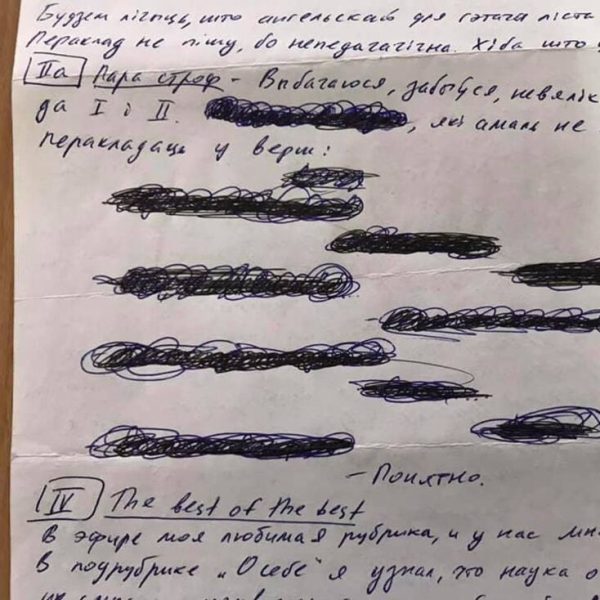 Будзем лічыць, што ангельскай для гэтага ліста
Пераклад не пішу, бо непедагагічна. Хіба што
IIа Пара строф - Выбачаюся, забыўся, невялік
да I і II. , які амаль не
перакладаць у верш:
- Понятно.
IV The best of the best
В эфире моя любимая рубрика, и у нас мн
В подрубрике „О себе" я узнал, что наука о